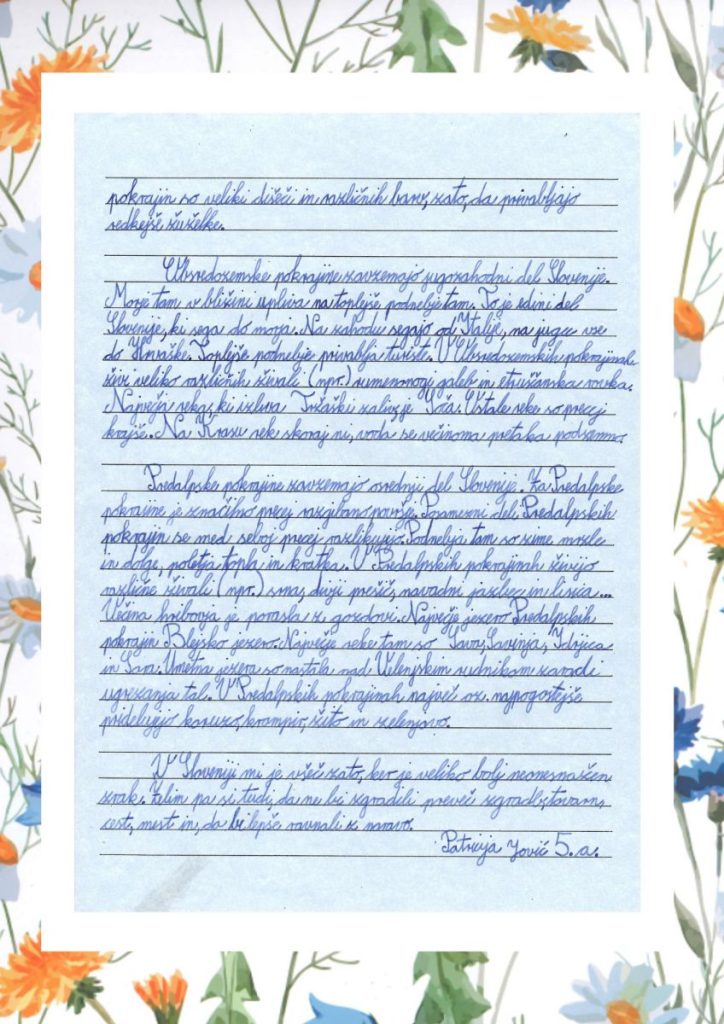 pokrajin so veliki dišeči in različnih barv, zato, da privabljajo
redkejše žuželke.
Obsredozemske pokrajine zavzemajo jugozahodni del Slovenije.
Morje tam v bližini vpliva na toplejše podnebje tam. To je edini del
Slovenije, ki sega do morja. Na zahodu segajo od Italije, na jugu vse
do Hrvaške. Toplejše podnebje privablja turiste. V Obsredozemskih pokrajinah
živi veliko različnih živali (npr.) rumenonogi galeb in etruščanska rovka.
Največja reka, ki izliva Tržaški zaliv, je Soča. Ostale reke so precej
krajše. Na Krasu rek skoraj ni, voda se večinoma pretaka podzemno.
Predalpske pokrajine zavzemajo osrednji del Slovenije. Za Predalpske
pokrajine je značilno precej razgibano površje. Posamezni deli Predalpskih
pokrajin se med seboj precej razlikujejo. Podnebja tam so zime mrzle
in dolge, poletja topla in kratka. V Predalpskih pokrajinah živijo
različne živali (npr.) srna, divji prešič, navadni jazbec in lisica...
Večina hribovja je porasla z gozdovi. Največje jezero Predalpskih
pokrajin Blejsko jezero. Največje reke tam so Sava, Savinja, Idrijca
in Sora. Umetna jezera so nastala nad Velenjskim rudnikom zaradi
ugrezanja tal. V Predalpskih pokrajinah največ oz. najpogostejše
pridelujejo koruzo, krompir, žito in zelenjavo.
V Sloveniji mi je všeč zato, ker je veliko bolj neonesnažen
zrak. Želim pa si tudi, da ne bi zgradili preveč zgradb, tovarn,
cest, mest in, da bi lepše ravnali z naravo.
Patricija Jović 5. a.